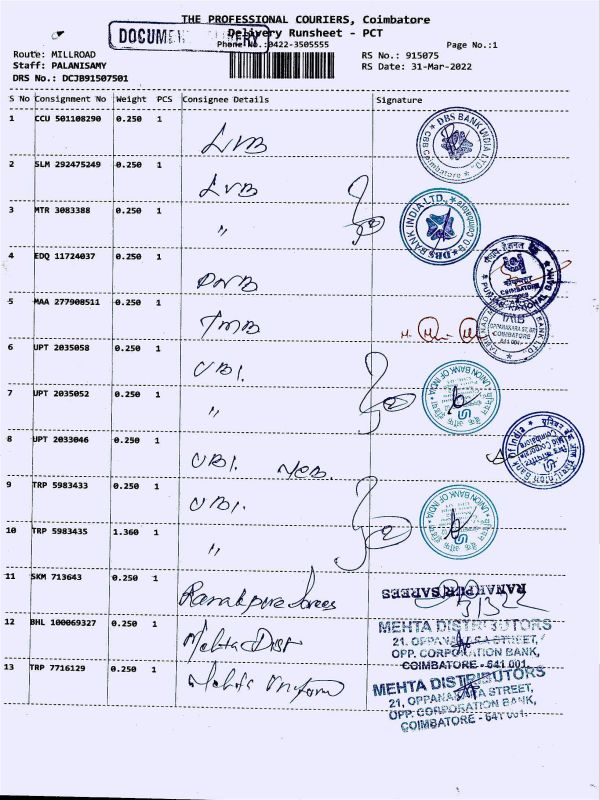 THE PROFESSIONAL COURIERS, Coimbatore
Delivery Runsheet - PCT
Phone No.:0422-3505555
Page No.:1
Route: MILLROAD
RS No.: 915075
Staff: PALANISAMY
RS Date: 31-Mar-2022
DRS No.: DCJB91507501
S No Consignment No Weight PCS Consignee Details Signature
1 CCU 501108290 0.250 1 LVB
DBS BANK INDIA LTD.
Coimbatore
2 SLM 292475249 0.250 1 LVB
3 MTR 3083388 0.250 1 "
DBS BANK INDIA LTD.,
4 EDQ 11724037 0.250 1 PNB
PUNJAB NATIONAL BANK
COIMBATORE
5 MAA 277908511 0.250 1 TMB
TMB
OPPANAKARA ST. BR.
COIMBATORE
641 001
6 UPT 2035058 0.250 1 UBI.
UNION BANK OF INDIA
7 UPT 2035052 0.250 1 "
8 UPT 2033046 0.250 1 UBI.
Union Bank of India
Coimbatore
9 TRP 5983433 0.250 1 UBI.
UNION BANK OF INDIA
10 TRP 5983435 1.360 1 "
11 SKM 713643 0.250 1 Ranakpura Sarees
RANAKPUR SAREES
12 BHL 100069327 0.250 1 Mehta Dist
MEHTA DISTRIBUTORS
21, OPPANAKARA STREET,
OPP. CORPORATION BANK,
COIMBATORE - 641 001.
13 TRP 7716129 0.250 1 Mehta
MEHTA DISTRIBUTORS
21, OPPANAKATA STREET,
OPP. CORPORATION BANK,
COIMBATORE - 641 001.